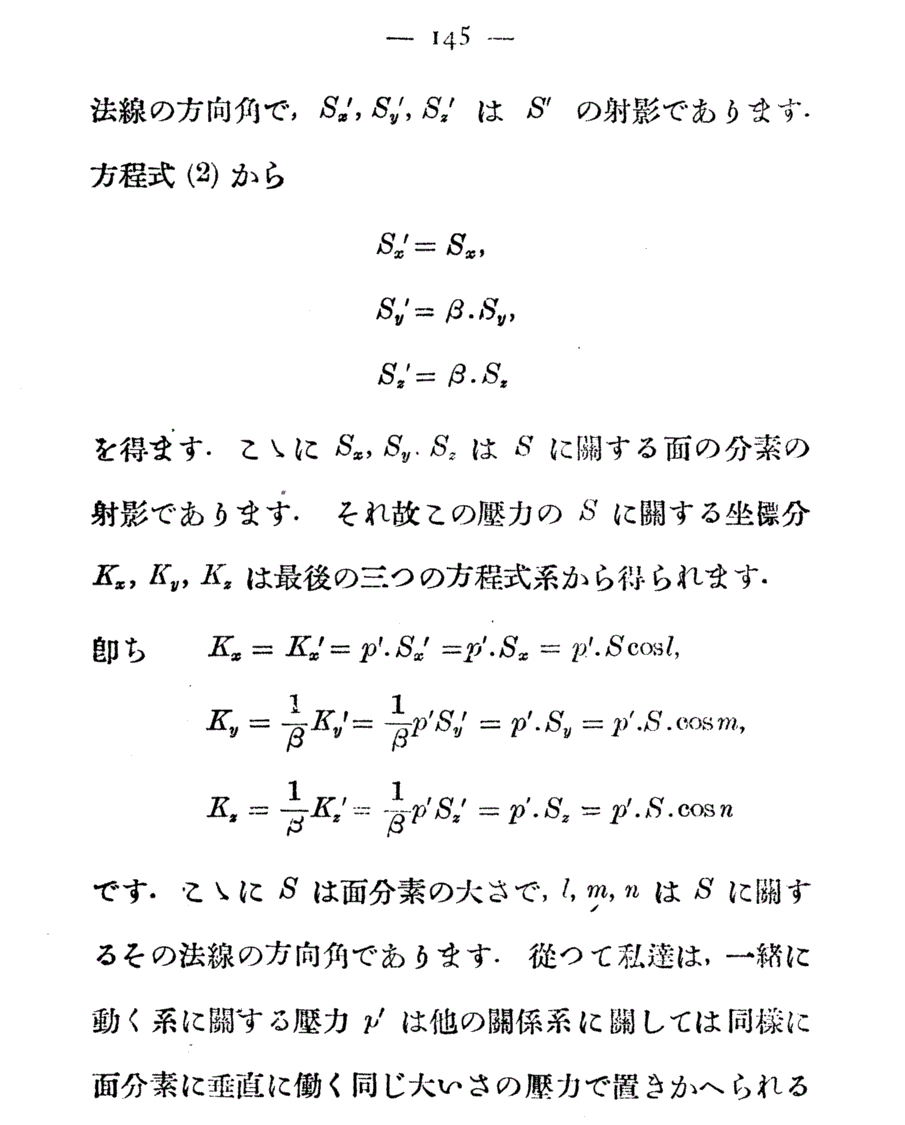 — 145 —
法線の方向角で, S′ₓ, S′ᵧ, S′_z は S′ の射影であります.
方程式 (2) から
Sₓ′ = Sₓ,
Sᵧ′ = β.Sᵧ,
S_z′ = β.S_z
を得ます. こゝに Sₓ, Sᵧ. S_z は S に關する面の分素の
射影であります. それ故この壓力の S に關する坐標分
Kₓ, Kᵧ, K_z は最後の三つの方程式系から得られます.
卽ち Kₓ = Kₓ′ = p′.Sₓ′ = p′.Sₓ = p′.S cos l,
Kᵧ = 1/β Kᵧ′ = 1/β p′Sᵧ′ = p′.Sᵧ = p′.S.cos m,
K_z = 1/β K_z′ = 1/β p′S_z′ = p′.S_z = p′.S.cos n
です. こゝに S は面分素の大さで, l, m, n は S に關す
るその法線の方向角であります. 從つて私達は, 一緖に
動く系に關する壓力 p′ は他の關係系に關しては同樣に
面分素に垂直に働く同じ大いさの壓力で置きかへられる